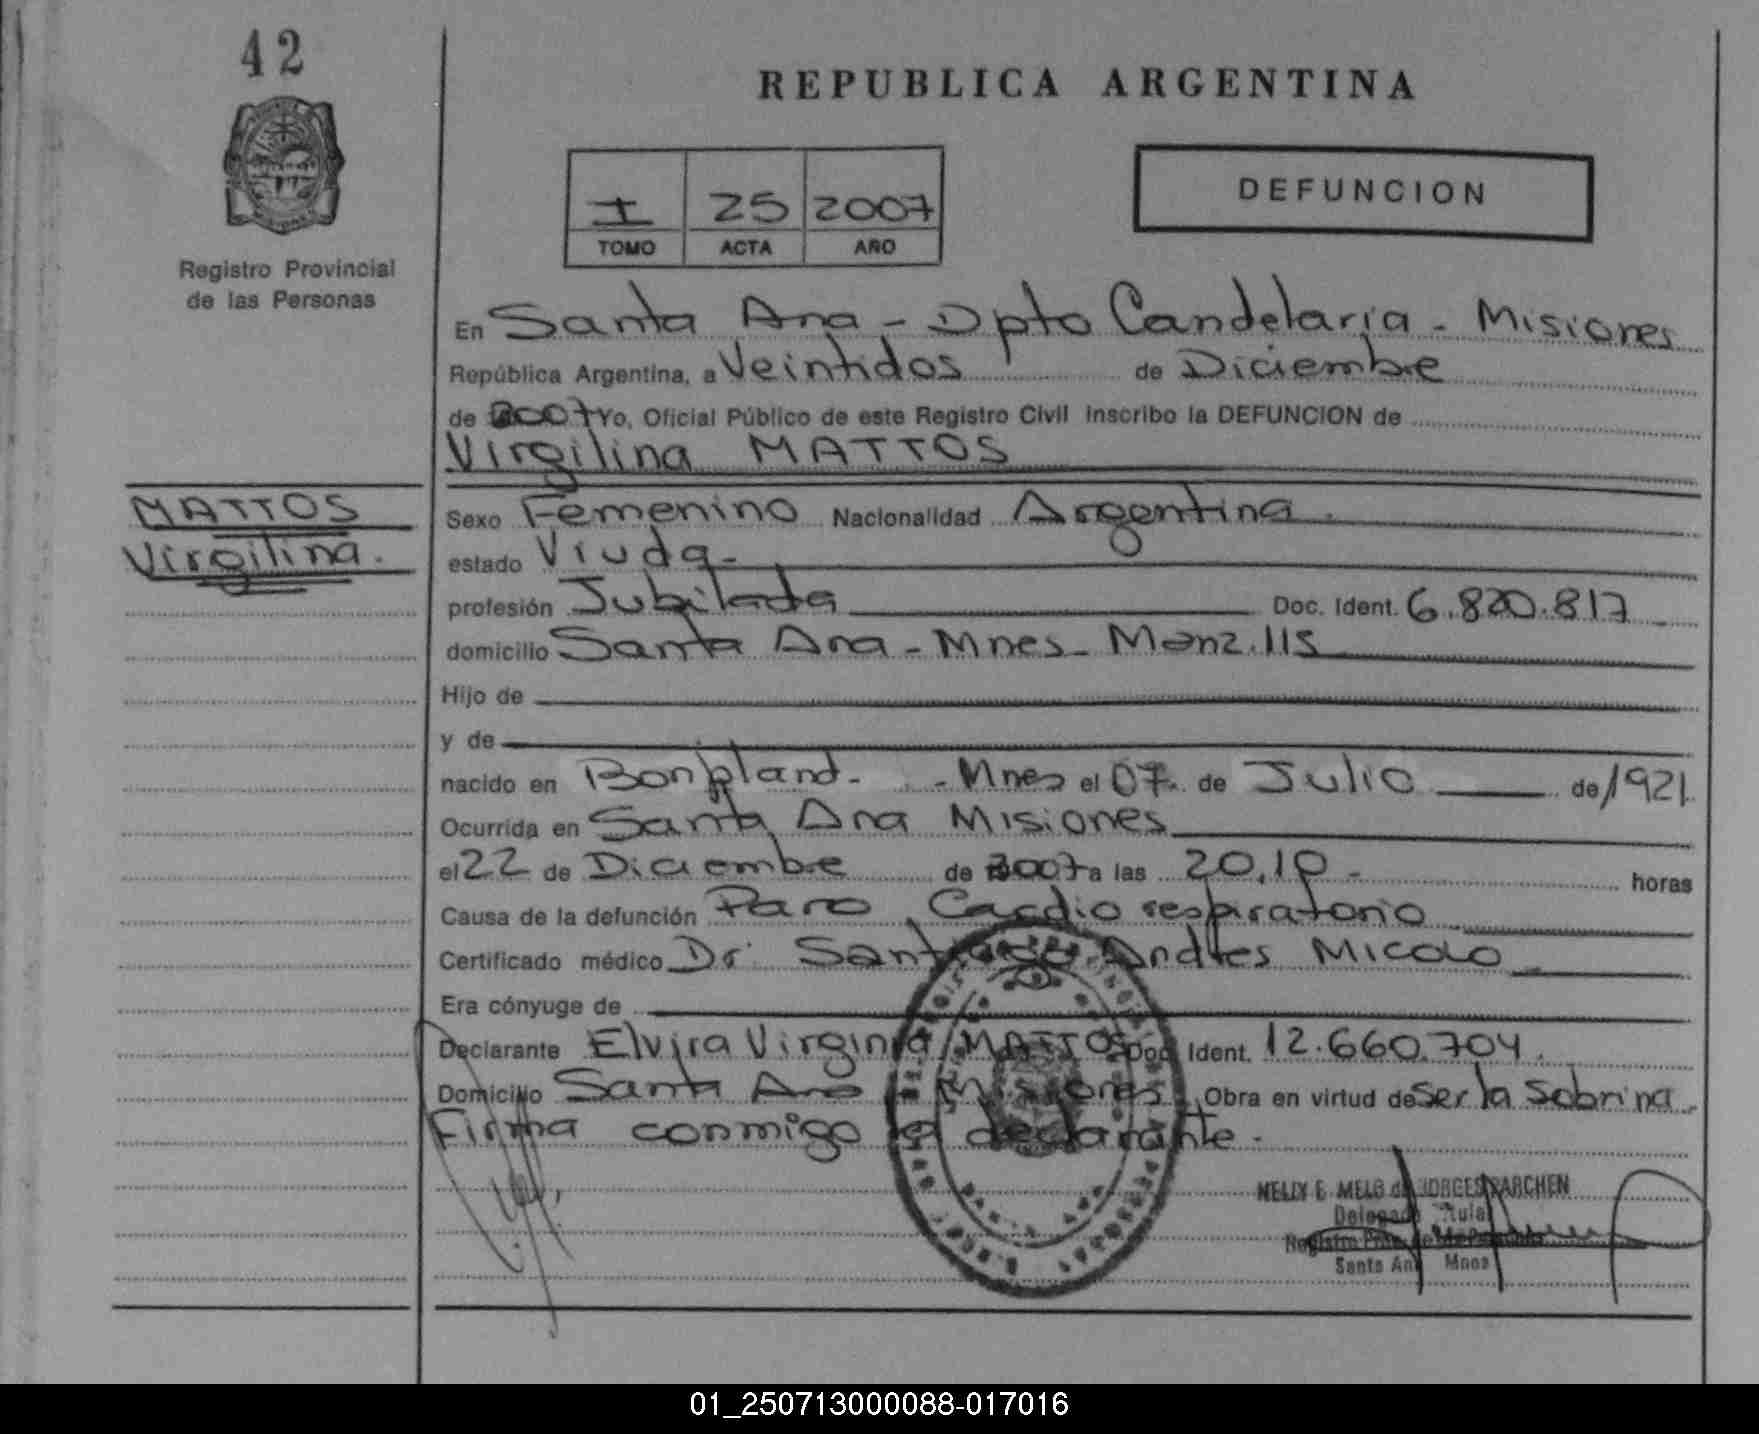 42
REPUBLICA ARGENTINA
I 25 2007
TOMO ACTA AÑO
DEFUNCION
Registro Provincial
de las Personas
En Santa Ana - Dpto Candelaria - Misiones
República Argentina, a Veintidos de Diciembre
de 2007 Yo, Oficial Público de este Registro Civil inscribo la DEFUNCION de
Virgilina MATTOS
MATTOS
Virgilina.
Sexo Femenino Nacionalidad Argentina.
estado Viuda-
profesión Jubilada Doc. Ident. 6.820.817
domicilio Santa Ana - Mnes - Manz. 115
Hijo de
y de
nacido en Bonpland. - Mnes el 07 de Julio de 1921.
Ocurrida en Santa Ana Misiones
el 22 de Diciembre de 2007 a las 20,10 - horas
Causa de la defunción Paro Cardio respiratorio
Certificado médico Dr. Santiago Andres Micolo
Era cónyuge de
Declarante Elvira Virginia MATTOS Doc. Ident. 12.660.704.
Domicilio Santa Ana - Misiones Obra en virtud de Ser la Sobrina.
Firma conmigo la declarante.-
NELLY E. MELO de JORGES PARCHEN
Santa Ana Mnes
01_250713000088-017016